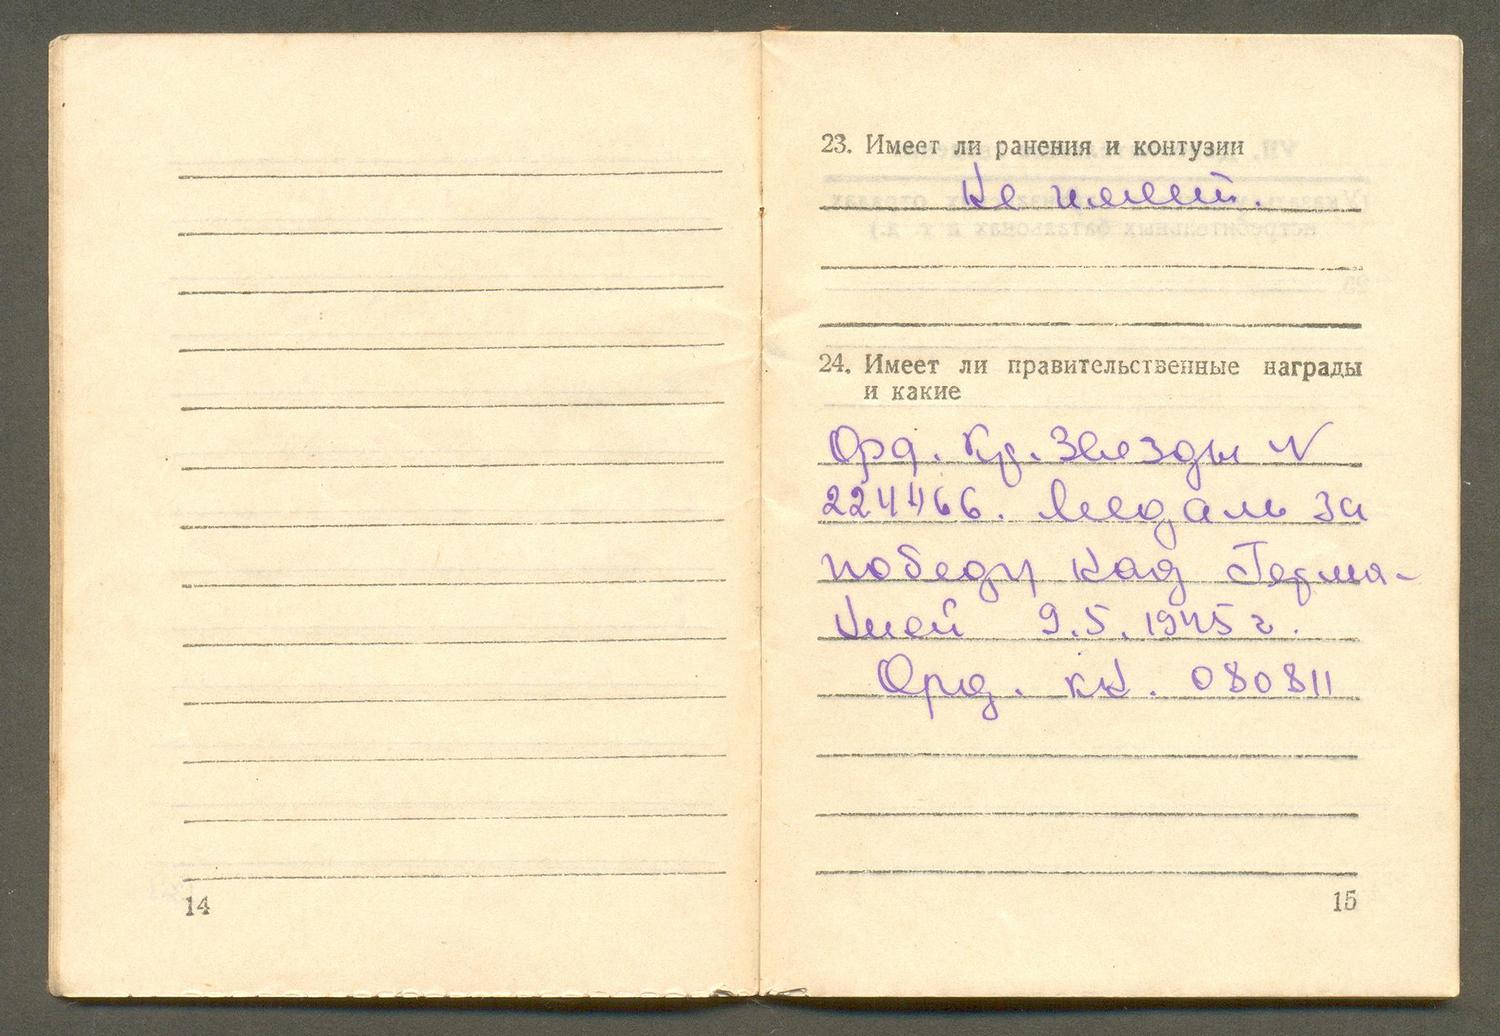 14
23. Имеет ли ранения и контузии
Не имеет.
24. Имеет ли правительственные награды
и какие
Орд. Кр. Звезды N
224466. Медаль за
победу над Герма-
нией 9.5.1945 г.
Орд. 080811
15